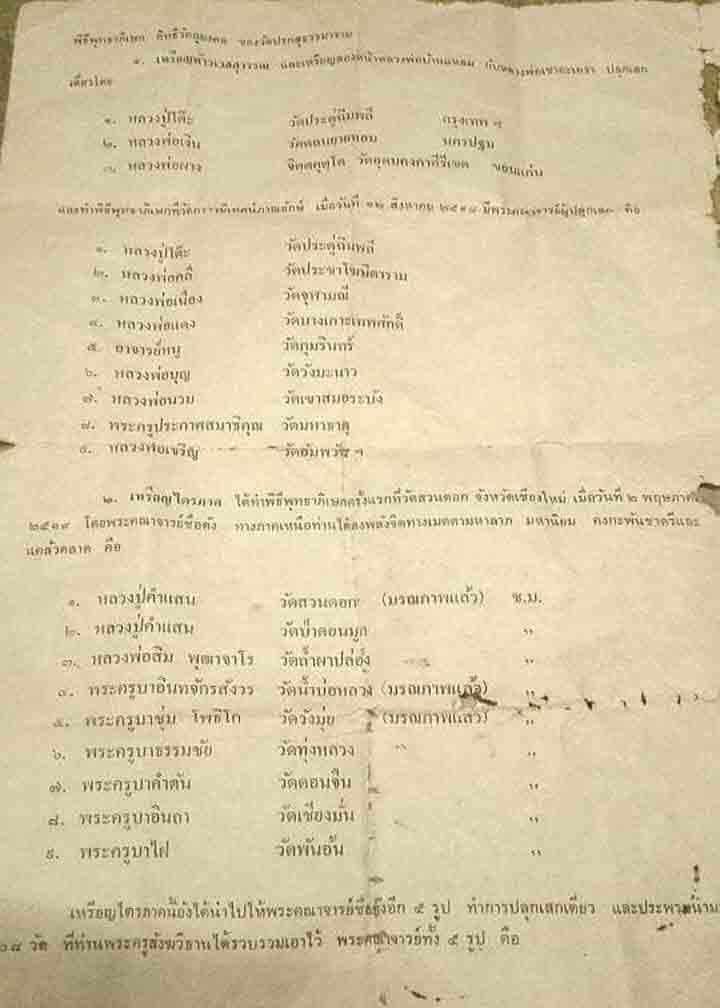 พิธีพุทธาภิเษก อิทธิวัตถุมงคล ของวัดปรกสุธรรมาราม
๑. เหรียญท้าวเวสสุวรรณ และเหรียญสองหน้าหลวงพ่อบ้านแหลม กับหลวงพ่อเขาตะเครา ปลุกเสก
เดี่ยวโดย
๑. หลวงปู่โต๊ะ วัดประดู่ฉิมพลี กรุงเทพ ฯ
๒. หลวงพ่อเงิน วัดดอนยายหอม นครปฐม
๓. หลวงพ่อผาง จิตตคุตฺโต วัดอุดมคงคาคีรีเขต ขอนแก่น
และทำพิธีพุทธาภิเษกที่วัด เมื่อวันที่ ๑๒ สิงหาคม ๒๕๑๘ มีพระคณาจารย์ผู้ปลุกเสก คือ
๑. หลวงปู่โต๊ะ วัดประดู่ฉิมพลี
๒. หลวงพ่อคลี่ วัดประชาโฆษิตาราม
๓. หลวงพ่อเนื่อง วัดจุฬามณี
๔. หลวงพ่อแดง วัดบางเกาะเทพศักดิ์
๕. อาจารย์หนู วัดภุมรินทร์
๖. หลวงพ่อบุญ วัดวังมะนาว
๗. หลวงพ่อนวม วัดเขาสมอระบัง
๘. พระครูประกาศสมาธิคุณ วัดมหาธาตุ
๙. หลวงพ่อเจริญ วัดอัมพวัน ฯ
๒. เหรียญไตรภาค ได้ทำพิธีพุทธาภิเษกครั้งแรกที่วัดสวนดอก จังหวัดเชียงใหม่ เมื่อวันที่ ๒ พฤษภาค
๒๕๑๙ โดยพระคณาจารย์ชื่อดัง ทางภาคเหนือท่านได้ลงพลังจิตทางเมตตามหาลาภ มหานิยม คงกะพันชาตรีและ
แคล้วคลาด คือ
๑. หลวงปู่คำแสน วัดสวนดอก (มรณภาพแล้ว) ช.ม.
๒. หลวงปู่คำแสน วัดป่าดอนมูล ,,
๓. หลวงพ่อสิม พุฒาจาโร วัดถ้ำผาปล่อง ,,
๔. พระครูบาอินทจักรสังวร วัดน้ำบ่อหลวง (มรณภาพแล้ว) ,,
๕. พระครูบาชุ่ม โพธิโก วัดวังมุย (มรณภาพแล้ว) ,,
๖. พระครูบาธรรมชัย วัดทุ่งหลวง ,,
๗. พระครูบาคำตัน วัดดอนจืน ,,
๘. พระครูบาอินถา วัดเชียงมั่น ,,
๙. พระครูบาไฝ วัดพันอ้น ,,
เหรียญไตรภาคนี้ยังได้นำไปให้พระคณาจารย์ชื่อดังอีก ๕ รูป ทำการปลุกเสกเดี่ยว และประพรมน้ำม
๐๘ วัด ที่ท่านพระครูสังฆวิธานได้รวบรวมเอาไว้ พระคณาจารย์ทั้ง ๕ รูป คือ